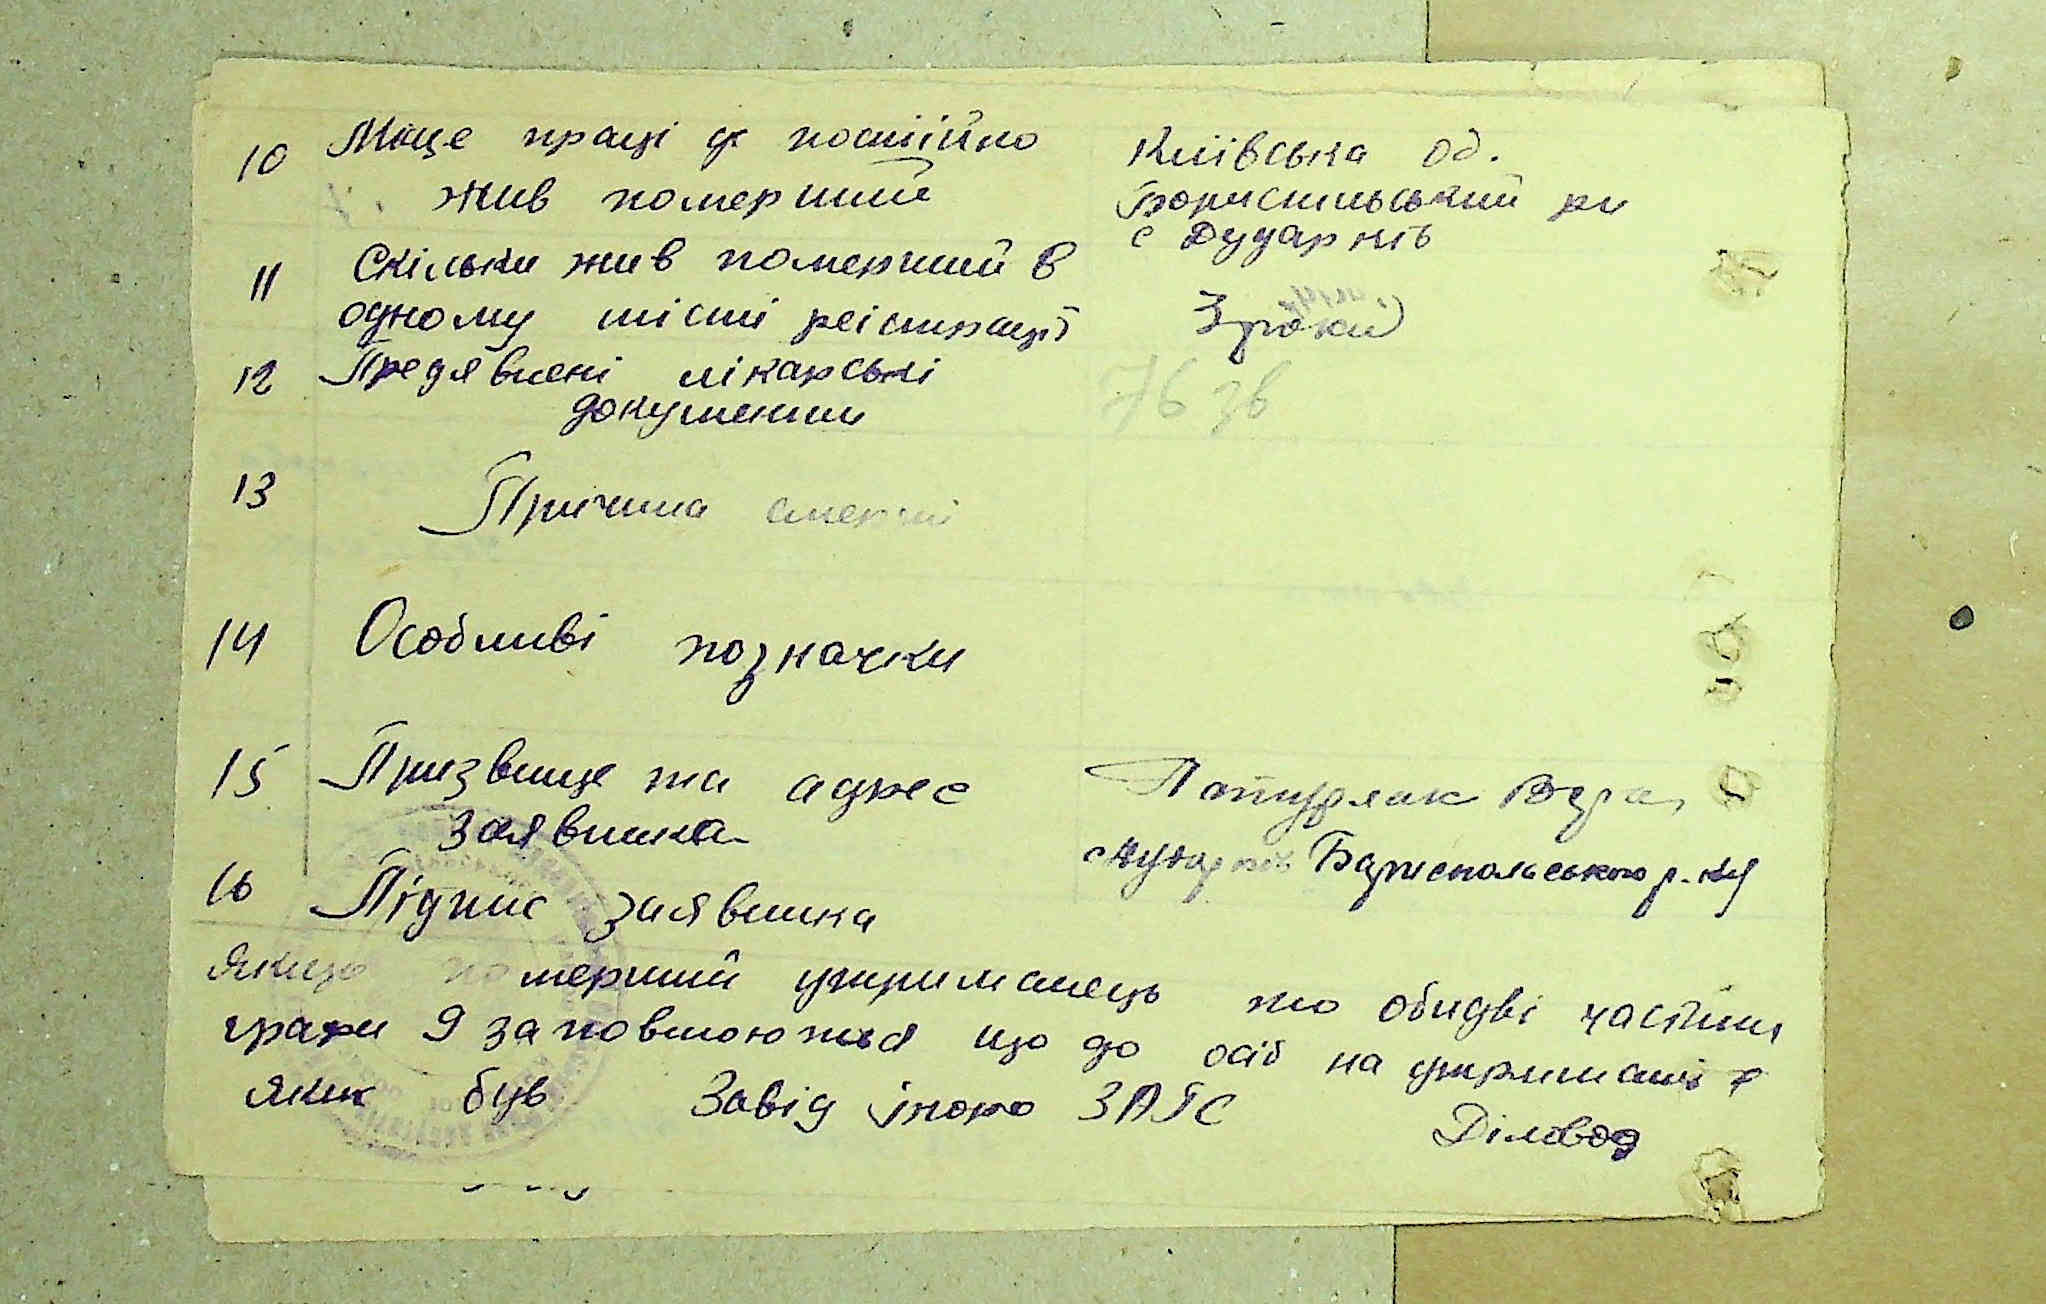 10 Місце праці де постійно Київська об.
жив померший Бориспільський рн
с Дударків
11 Скільки жив померший в
одному місті реістрації 3 роки
12 Предявлені лікарські 76 зв
документи
13 Причина смерти
14 Особливі позначки
15 Призвище та адрес Вера,
заявника с Дударків Бориспольського р-ну
16 Підпис заявника
Якщо померший утриманець то обидві частини
графи 9 заповнюються що до осіб на утримані
яких був Завід бюро ЗАГС Діловод